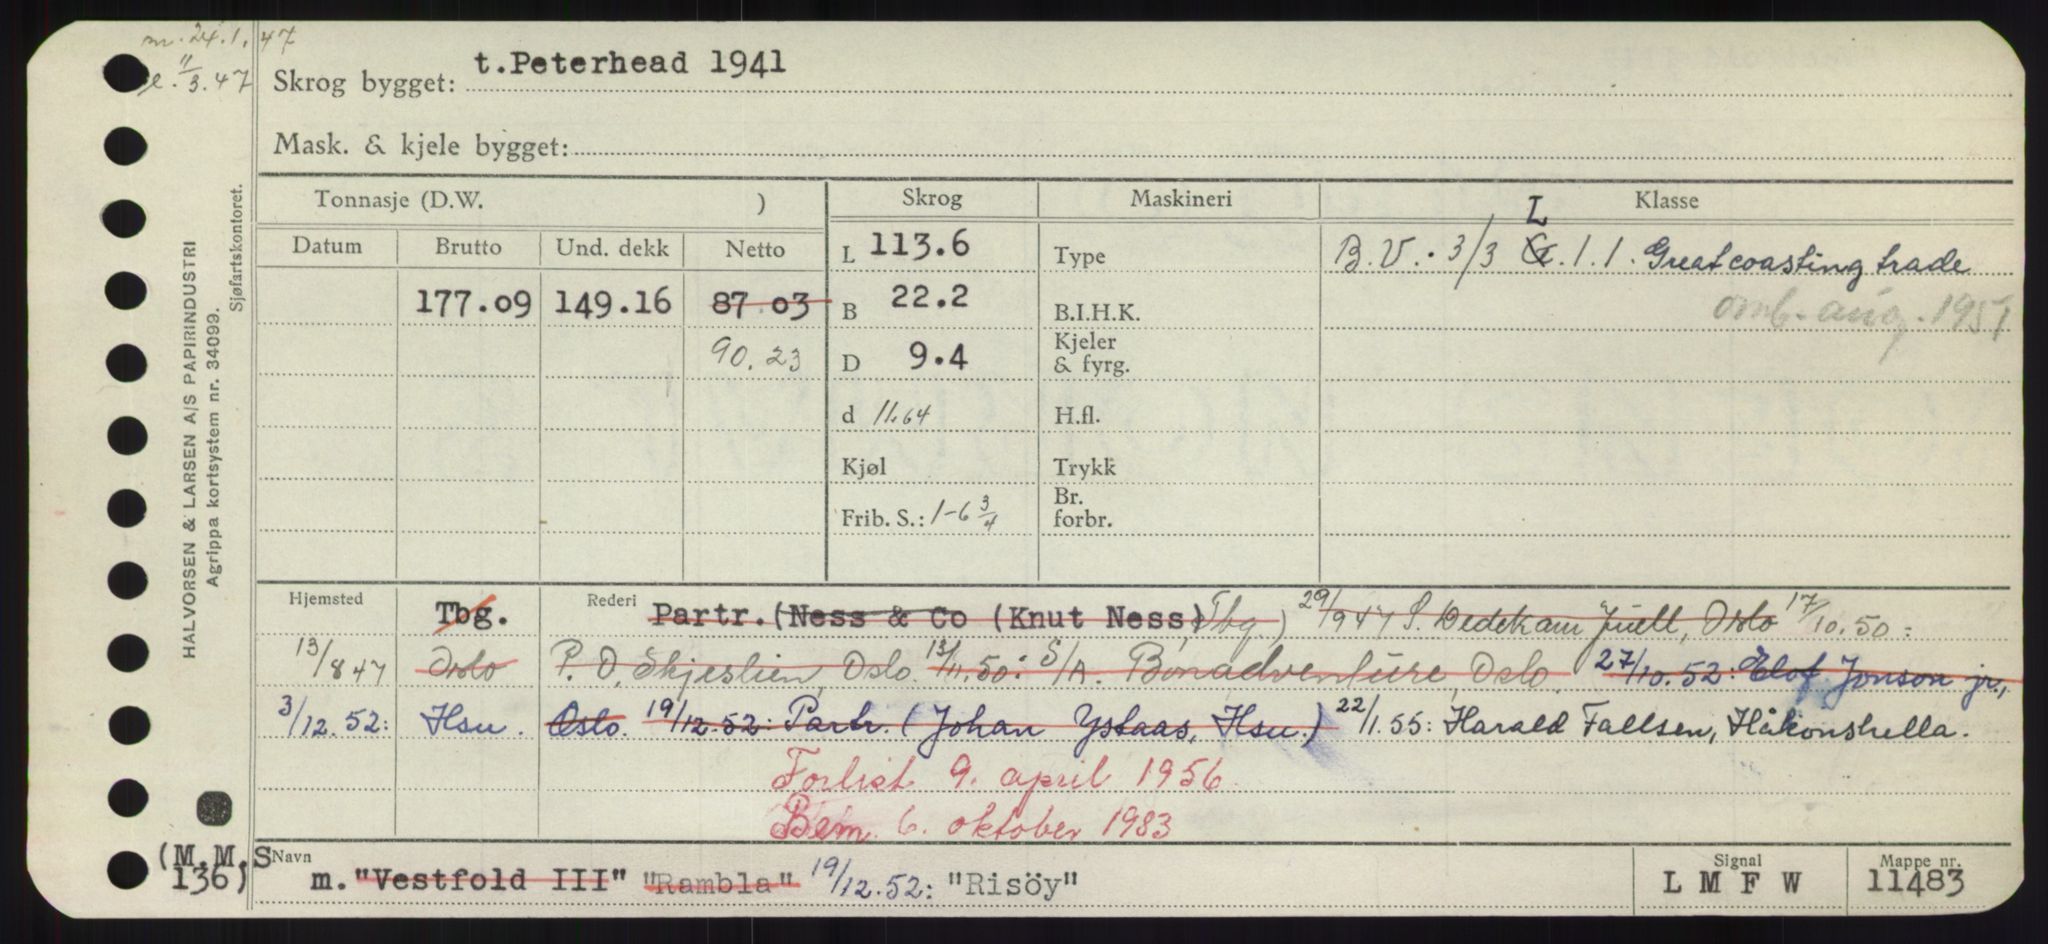 m. 24.1.47
e. 11/3.47
Skrog bygget: t.Peterhead 1941
Mask. & kjele bygget:
HALVORSEN & LARSEN A/S PAPIRINDUSTRI
Agrippa kortsystem nr. 34099.
Sjøfartskontoret.
Tonnasje (D.W. ) Skrog Maskineri Klasse
Datum Brutto Und. dekk Netto L 113.6 Type B.V. . 3/3 L G. 1.1. Great coasting trade
177.09 149.16 87 03 B 22.2 B.I.H.K. omb. aug. 1951
90.23 D 9.4 Kjeler & fyrg.
d 11.64 H.fl.
Kjøl Trykk
Frib. S.: 1-6 3/4 Br. forbr.
Hjemsted Tbg. Rederi Partr. (Ness & Co (Knut Ness) Tbg.) 29/9 47 S. Dedekam Juell, Oslo 17/10.50:
13/8 47 Oslo P. O. Skjeslien, Oslo. 13/11.50: S/A. Bonadventure, Oslo. 27/10.52: Elof Jonson jr.,
3/12.52: Hsu. Oslo. 19/12.52: Partr. (Johan Ystaas, Hsu.) 22/1.55: Harald Fallsen, Håkonshella.
Forlist 9. april 1956.
Bem. 6. oktober 1983
(M.M.S 136) Navn m. "Vestfold III" "Rambla" 19/12.52: "Risöy" Signal L M F W Mappe nr. 11483